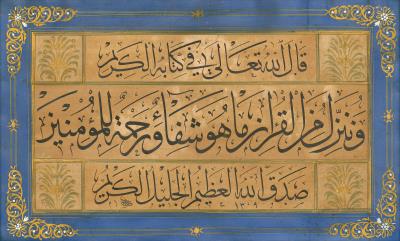 قال الله تعالى في كتابه الكريم
وننزل من القرآن ما هو شفاء ورحمة للمؤمنين
صدق الله العظيم الجليل الكريم
١٣٠٩